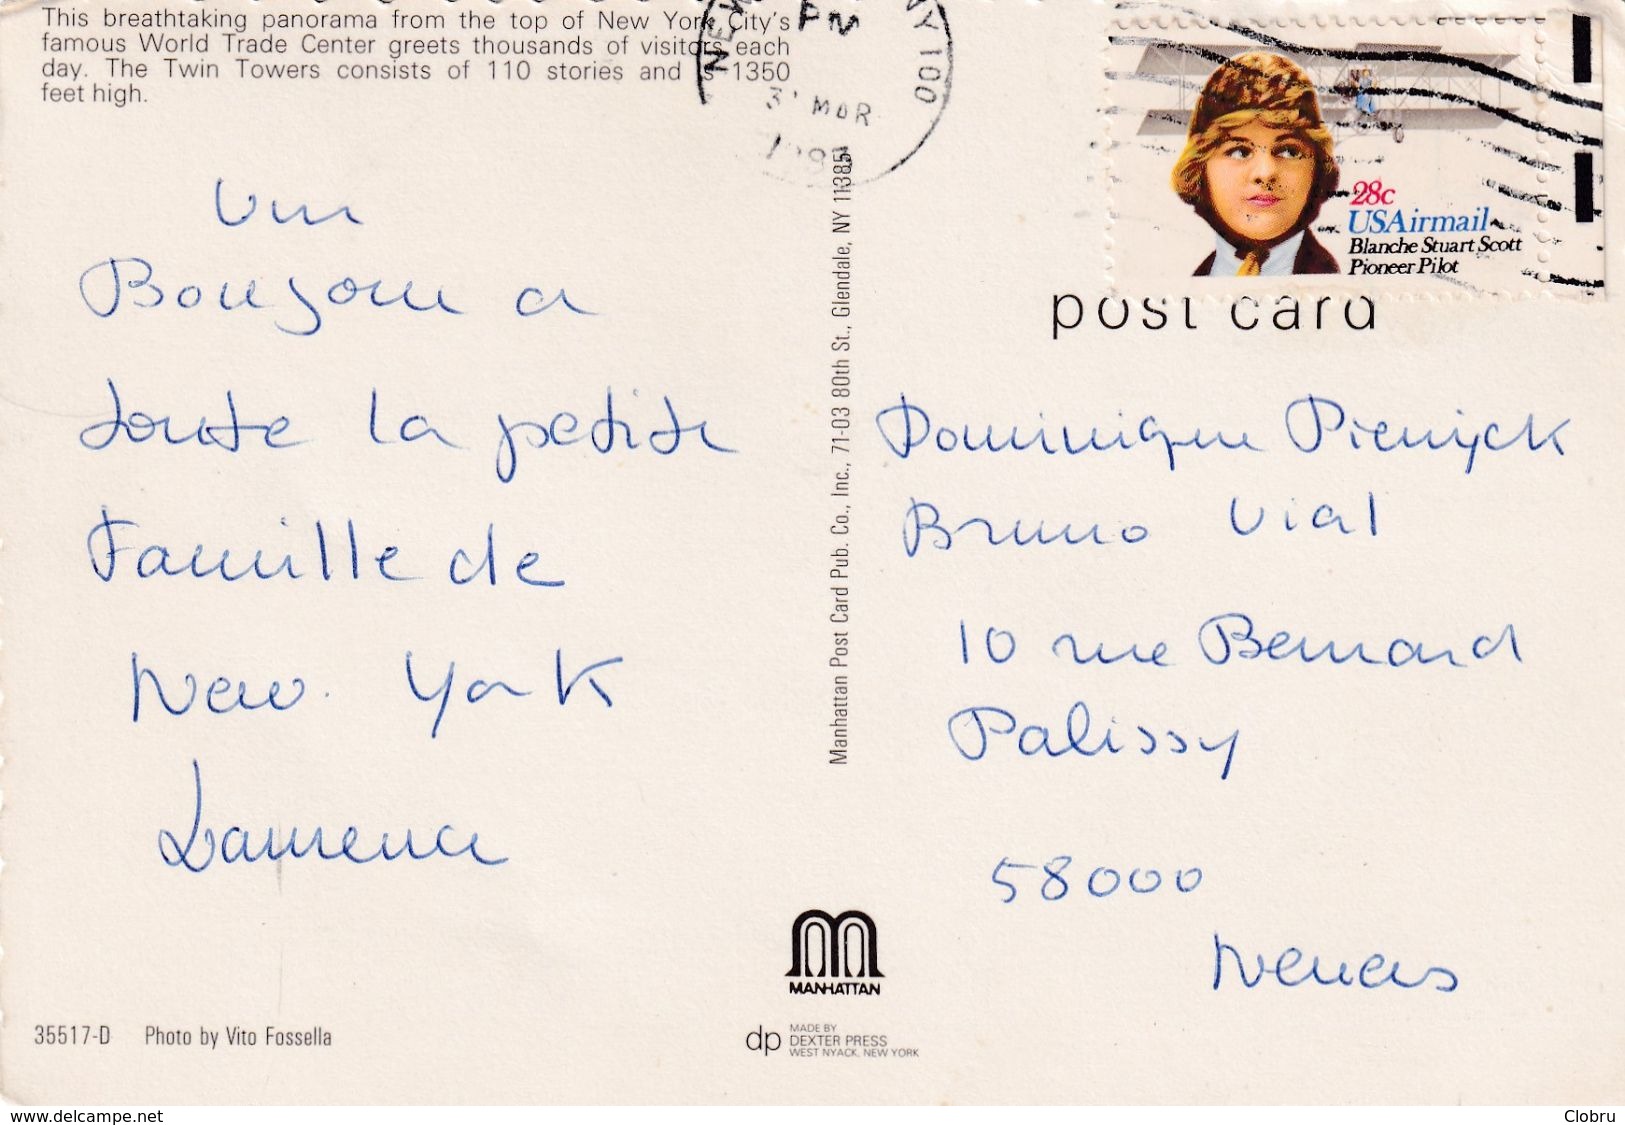 This breathtaking panorama from the top of New York City's
famous World Trade Center greets thousands of visitors each
day. The Twin Towers consists of 110 stories and is 1350
feet high.
NEW
PM
NY 100
MAR
28c
USAirmail
Blanche Stuart Scott
Pioneer Pilot
post card
Un
Bonjour a
toute la petite
Famille de
New. York
Laurence
Manhattan Post Card Pub. Co., Inc., 71-03 80th St., Glendale, NY 11385
Dominique Pienyck
Bruno Vial
10 rue Bernard
Palissy
58000
Nevers
MANHATTAN
35517-D Photo by Vito Fossella
dp MADE BY
DEXTER PRESS
WEST NYACK, NEW YORK
www.delcampe.net
Clobru